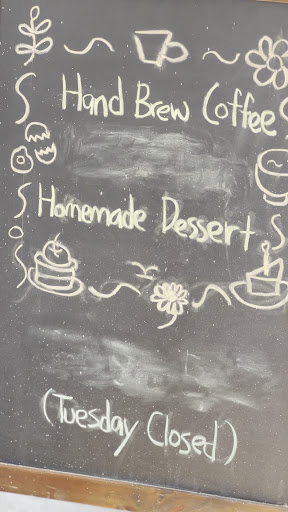 Hand Brew Coffee
Homemade Dessert
(Tuesday Closed)